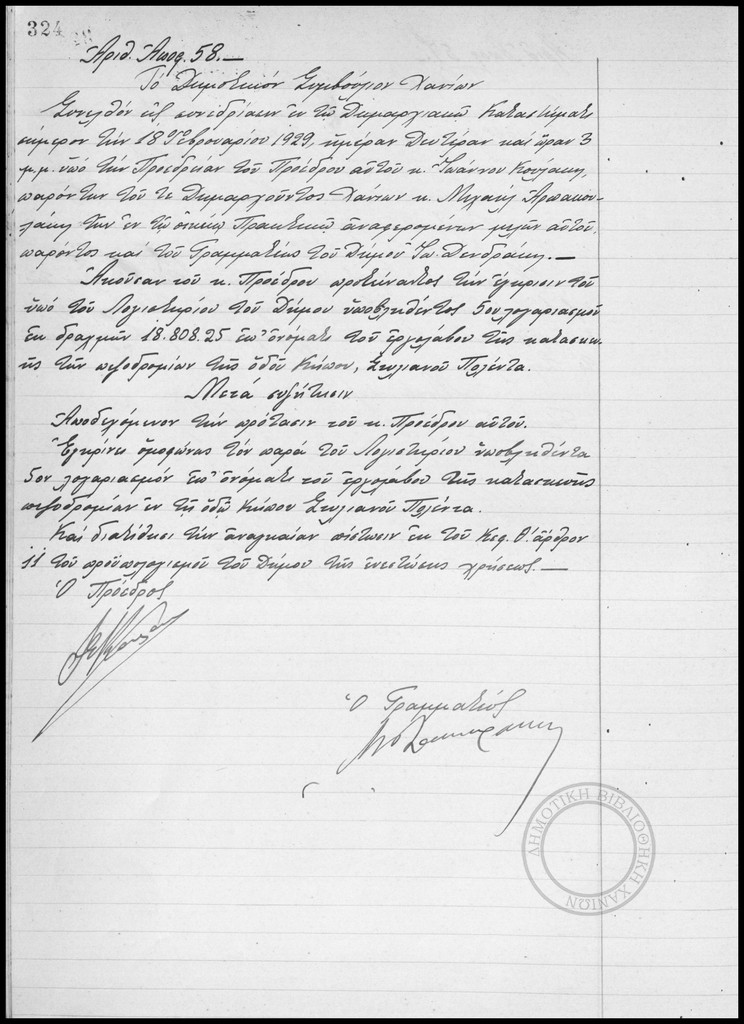 324
Ἀριθ. Ἀποφ. 58.—
Τό Δημοτικόν Συμβούλιον Χανίων
Συνελθόν εἰς συνεδρίασιν ἐν τῷ Δημαρχιακῷ Καταστήματι
σήμερον τήν 18 Φεβρουαρίου 1929, ἡμέραν Δευτέραν καί ὥραν 3
μ.μ. ὑπό τήν Προεδρείαν τοῦ Προέδρου αὐτοῦ κ. Ἰωάννου
παρόντων τοῦ τε Δημαρχοῦντος Χανίων κ. Μιχαήλ
τῶν ἐν τῷ οἰκείῳ Πρακτικῷ ἀναφερομένων μελῶν αὐτοῦ,
παρόντος καί τοῦ Γραμματέως τοῦ Δήμου Ἰω. Δενδράκη.—
Ἀκοῦσαν τοῦ κ. Προέδρου προτείναντος τήν ἔγκρισιν τοῦ
ὑπό τοῦ Λογιστηρίου τοῦ Δήμου ὑποβληθέντος 5ου λογαριασμοῦ
ἐκ δραχμῶν 18.808.25 ἐπ' ὀνόματι τοῦ ἐργολάβου τῆς κατασκευ-
ῆς τῶν πεζοδρομίων τῆς ὁδοῦ Κήπου, Στυλιανοῦ Πολέντα.
Μετά συζήτησιν
Ἀποδεχόμενον τήν πρότασιν τοῦ κ. Προέδρου αὐτοῦ.
Ἐγκρίνει ὁμοφώνως τόν παρά τοῦ Λογιστηρίου ὑποβληθέντα
5ον λογαριασμόν ἐπ' ὀνόματι τοῦ ἐργολάβου τῆς κατασκευῆς
πεζοδρομίων ἐν τῇ ὁδῷ Κήπου Στυλιανοῦ Πολέντα.
Καί διατίθησι τήν ἀναγκαίαν πίστωσιν ἐκ τοῦ Κεφ. Θ! ἄρθρον
11 τοῦ προϋπολογισμοῦ τοῦ Δήμου τῆς ἐνεστώσης χρήσεως.—
Ὁ Πρόεδρος
Ὁ Γραμματεύς
ΔΗΜΟΤΙΚΗ ΒΙΒΛΙΟΘΗΚΗ ΧΑΝΙΩΝ